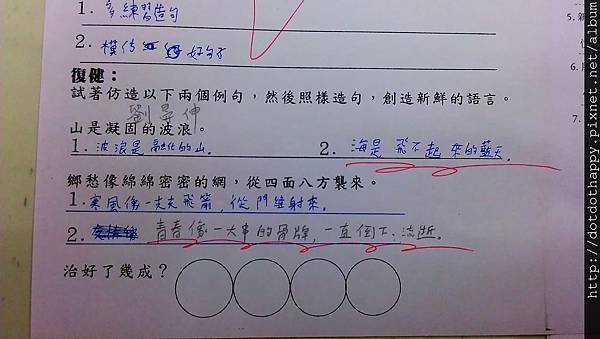 1. 多練習造句
2. 模仿 好句子
復健：
試著仿造以下兩個例句，然後照樣造句，創造新鮮的語言。
劉晏伸
山是凝固的波浪。
1. 波浪是融化的山. 2. 海是飛不起來的藍天.
鄉愁像綿綿密密的網，從四面八方襲來。
1. 寒風像一支支飛箭,從門縫射來.
2. 青春像一大串的骨牌,一直倒下.流逝.
治好了幾成？
5. 新
6.
7.
http://dotdothappy.pixnet.net/album